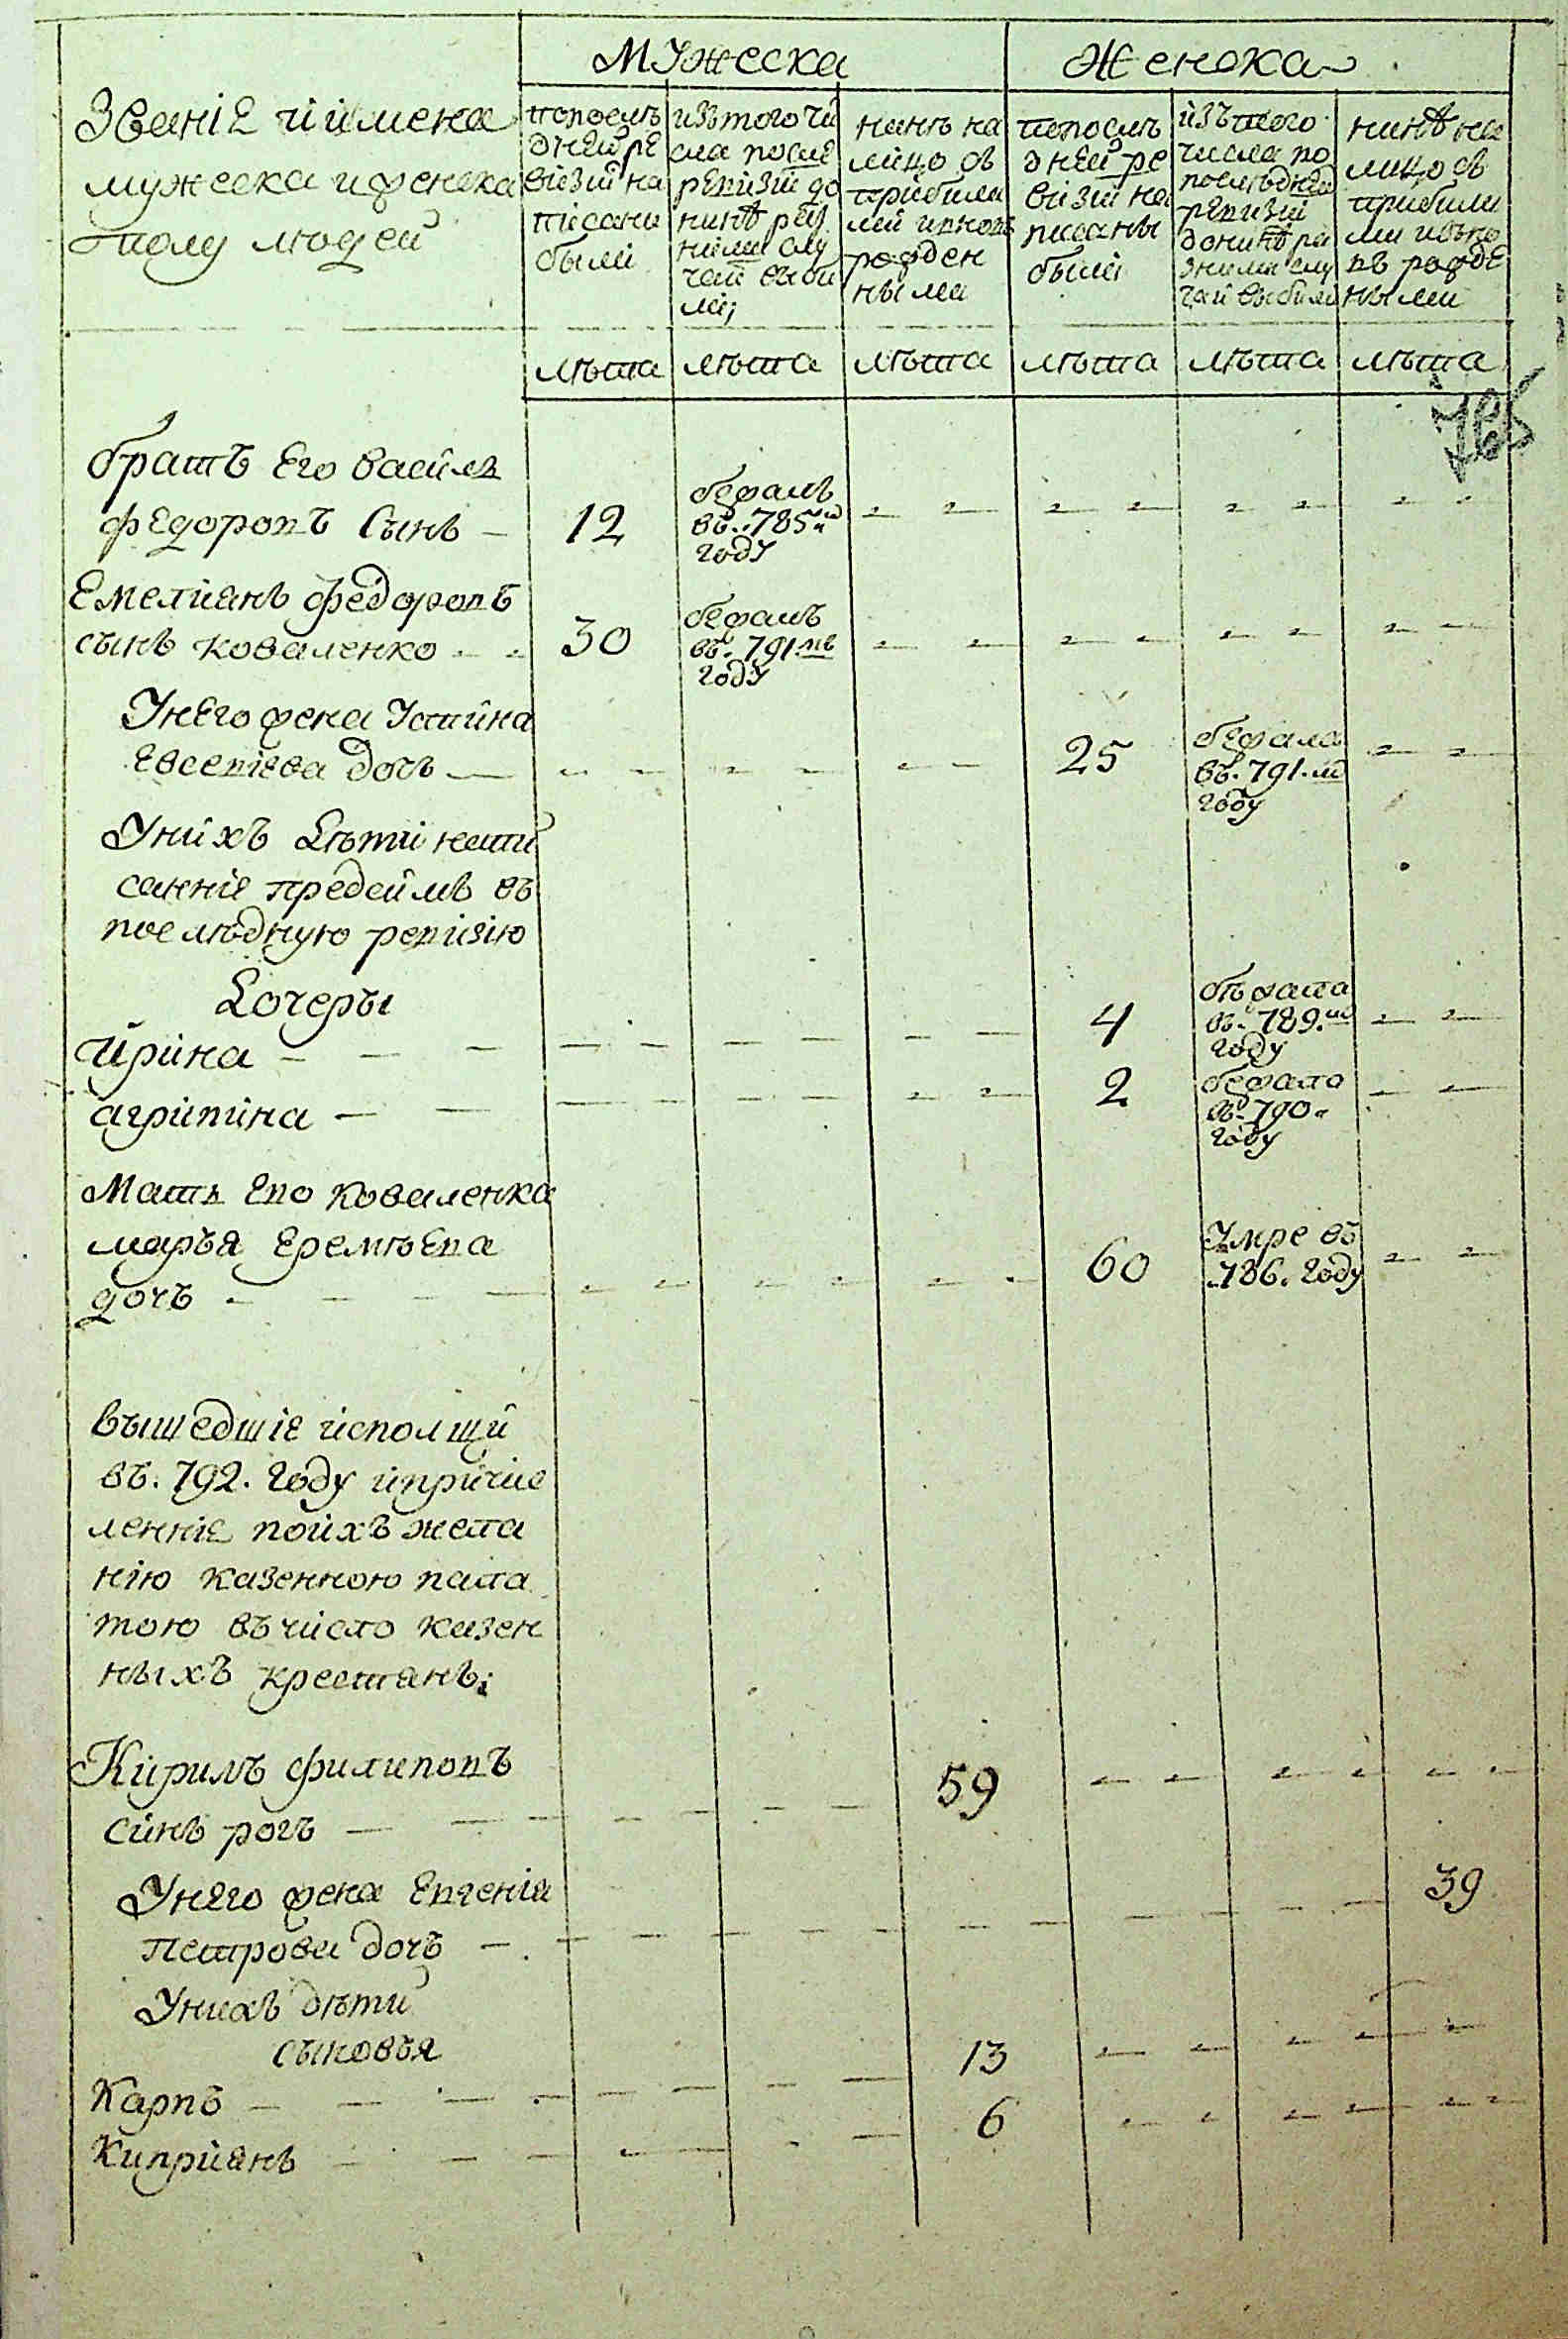 Мужеска Женска
Званіе и имена
мужеска и женска
полу людей
попослѣ
дней ре
візіи на
писани
были
изъ того чи
сла после
ревизіи до
нинѣ раз
ними слу
чаи выби
ли;
нинѣ на
лицо съ
прибили
ми и вновь
рожден
ными
попослѣ
дней ре
визіи на
писаны
были
изъ того
числа по
последней
ревизіи
донинѣ ра
зними слу
чаи выбили
нинѣ на
лицо съ
прибили
ми и вно
въ рожде
ными
лѣта лѣта лѣта лѣта лѣта лѣта
братъ его василь
федоровъ сынъ — 12 бежалъ въ 785м году
Емелианъ федоровъ
сынъ коваленко - - 30 бежалъ въ 791мъ году
У него жена Устина
евсевіева дочь — 25 бежала въ. 791.м году
У нихъ дѣти напи
санніе предсимъ въ
последную ревизію
Дочеры
Ирина — — — 4 бѣжала въ 789.м году
агрипина — — 2 бежала въ 790м году
Мать его коваленка
марья еремѣева
дочъ - — - — 60 Умре въ .786. году
вышедшіе испольщи
въ. 792. году и причис
ленніе по ихъ жела
нію казенною пала
тою въ число казен
ныхъ крестянъ;
Кирилъ филиповъ
синъ рогъ — — — 59
У него жена Евгенія 39
Петрова дочъ — .
У нихъ дѣти
сыновъя
Карпъ — — — 13
Киприянъ — — — 6